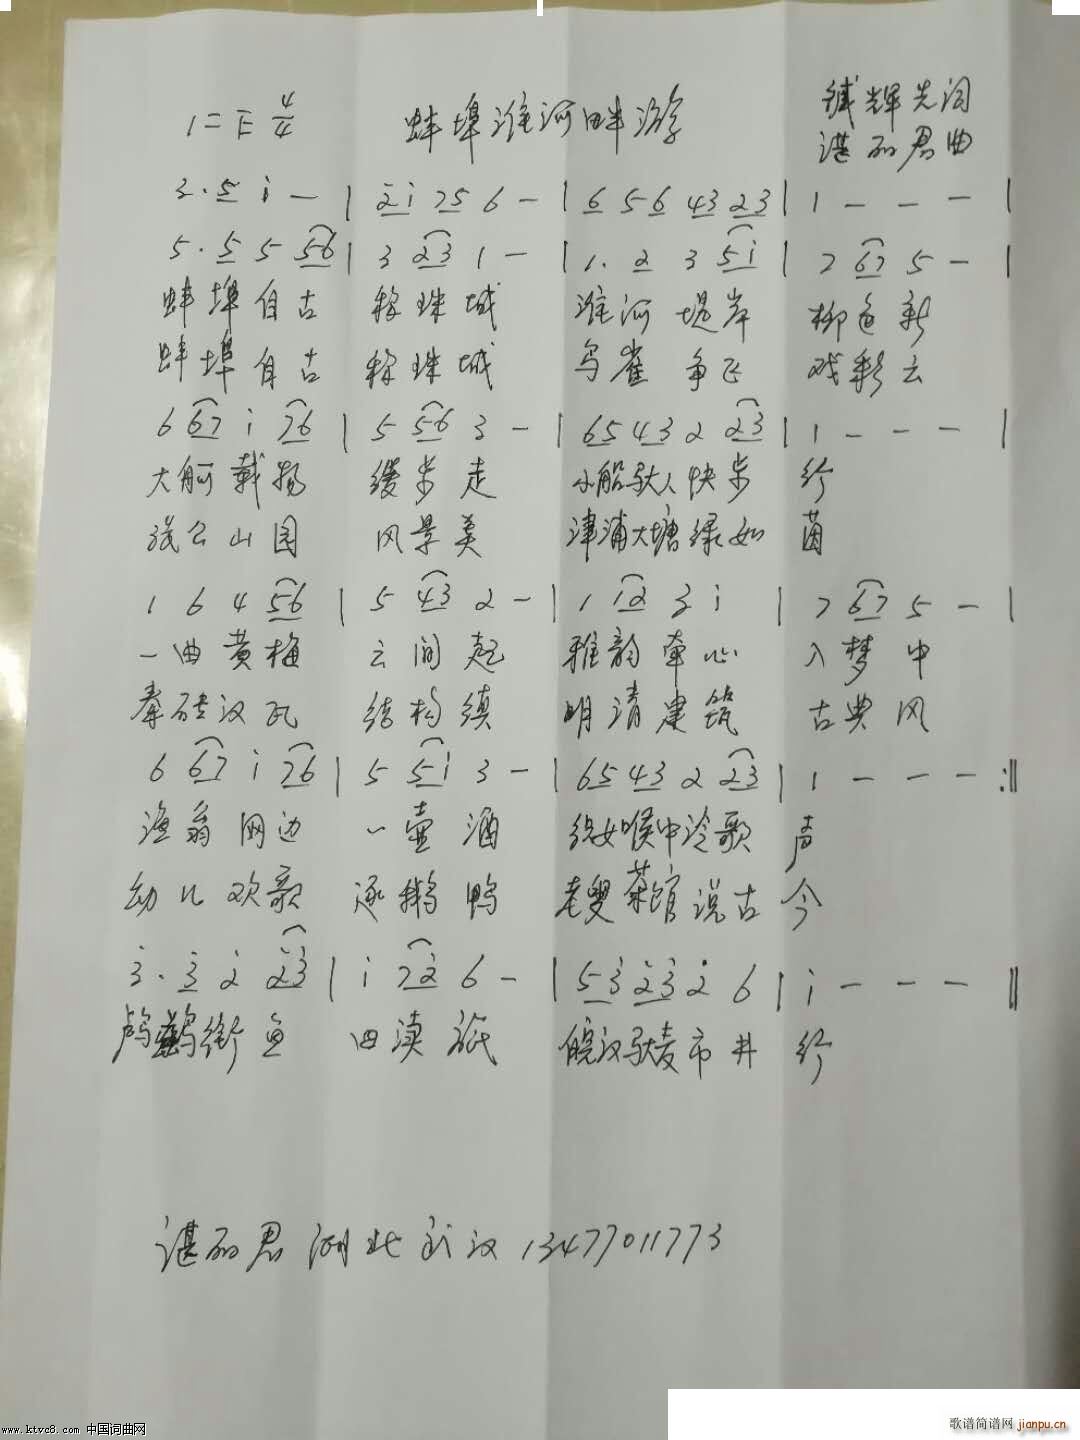 1=E 4/4 蚌埠淮河畔游 铖辉先词
谌丽君曲
3·5 i — | 2i 75 6 — | 6 5 6 43 23 | 1 — — — |
5·5 5 56 | 3 23 1 — | 1. 2 3 5i | 7 67 5 — |
蚌埠自古 称珠城 淮河堤岸 柳色新
蚌埠自古 称珠城 鸟雀争飞 戏彩云
6 67 i 76 | 5 56 3 — | 65 43 2 23 | 1 — — — |
大舸载物 缓步走 小船驮人快步 行
张公山园 风景美 津浦大塘绿如 茵
1 6 4 56 | 5 43 2 — | 1 12 3 i | 7 67 5 — |
一曲黄梅 云间起 雅韵牵心 入梦中
秦砖汉瓦 结构镇 明清建筑 古典风
6 67 i 76 | 5 5i 3 — | 65 43 2 23 | 1 — — — :‖
渔翁网边 一壶酒 喉中冷歌 声
幼儿欢歌 逐鹅鸭 老叟茶馆说古 今
3·3 2 23 | i 72 6 — | 53 23 2 6 | i — — — ‖
鸬鹚衔鱼 四渎 皖汉驮麦市井 行
谌丽君 湖北武汉 13477011773
www.ktvc8.com 中国词曲网
歌谱简谱网 jianpu.cn